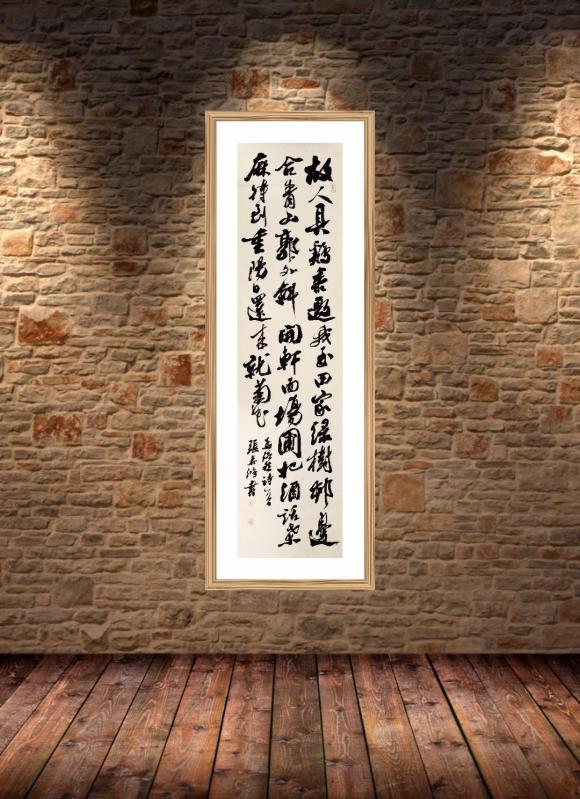 故人具鷄黍邀我至田家緑樹邨邊
合青山郭外斜開軒面場圃把酒話桑
麻待到重陽日還来就菊花
孟浩然詩一首
張書